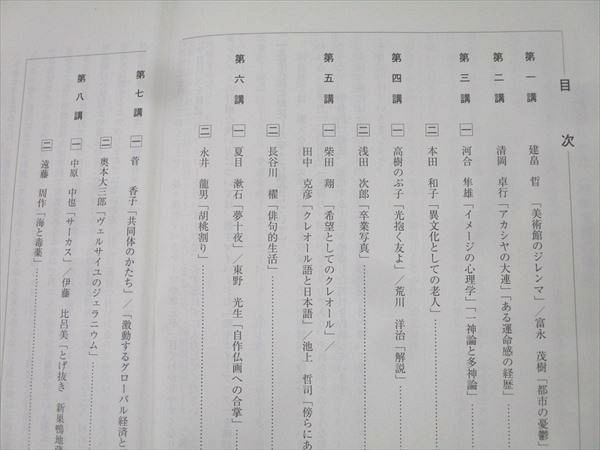 目次
第一講 建畠 晢「美術館のジレンマ」／富永 茂樹「都市の憂鬱」
第二講 清岡 卓行「アカシヤの大連」「ある運命感の経歴」
第三講 一 河合 隼雄「イメージの心理学」「一神論と多神論」
二 本田 和子「異文化としての老人」
第四講 一 高樹のぶ子「光抱く友よ」／荒川 洋治「解説」
二 浅田 次郎「卒業写真」
第五講 一 柴田 翔「希望としてのクレオール」／
田中 克彦「クレオール語と日本語」／池上 哲司「傍らにあ
二 長谷川 櫂「俳句的生活」
第六講 一 夏目 漱石「夢十夜」／東野 光生「自作仏画への合掌」
二 永井 龍男「胡桃割り」
第七講 一 香 香子「共同体のかたち」／「激動するグローバル経済と
二 奥本大三郎「ヴェルサイユのジェラニウム」
第八講 一 中原 中也「サーカス」／伊藤 比呂美「とげ抜き 新巣鴨地蔵
二 遠藤 周作「海と毒薬」